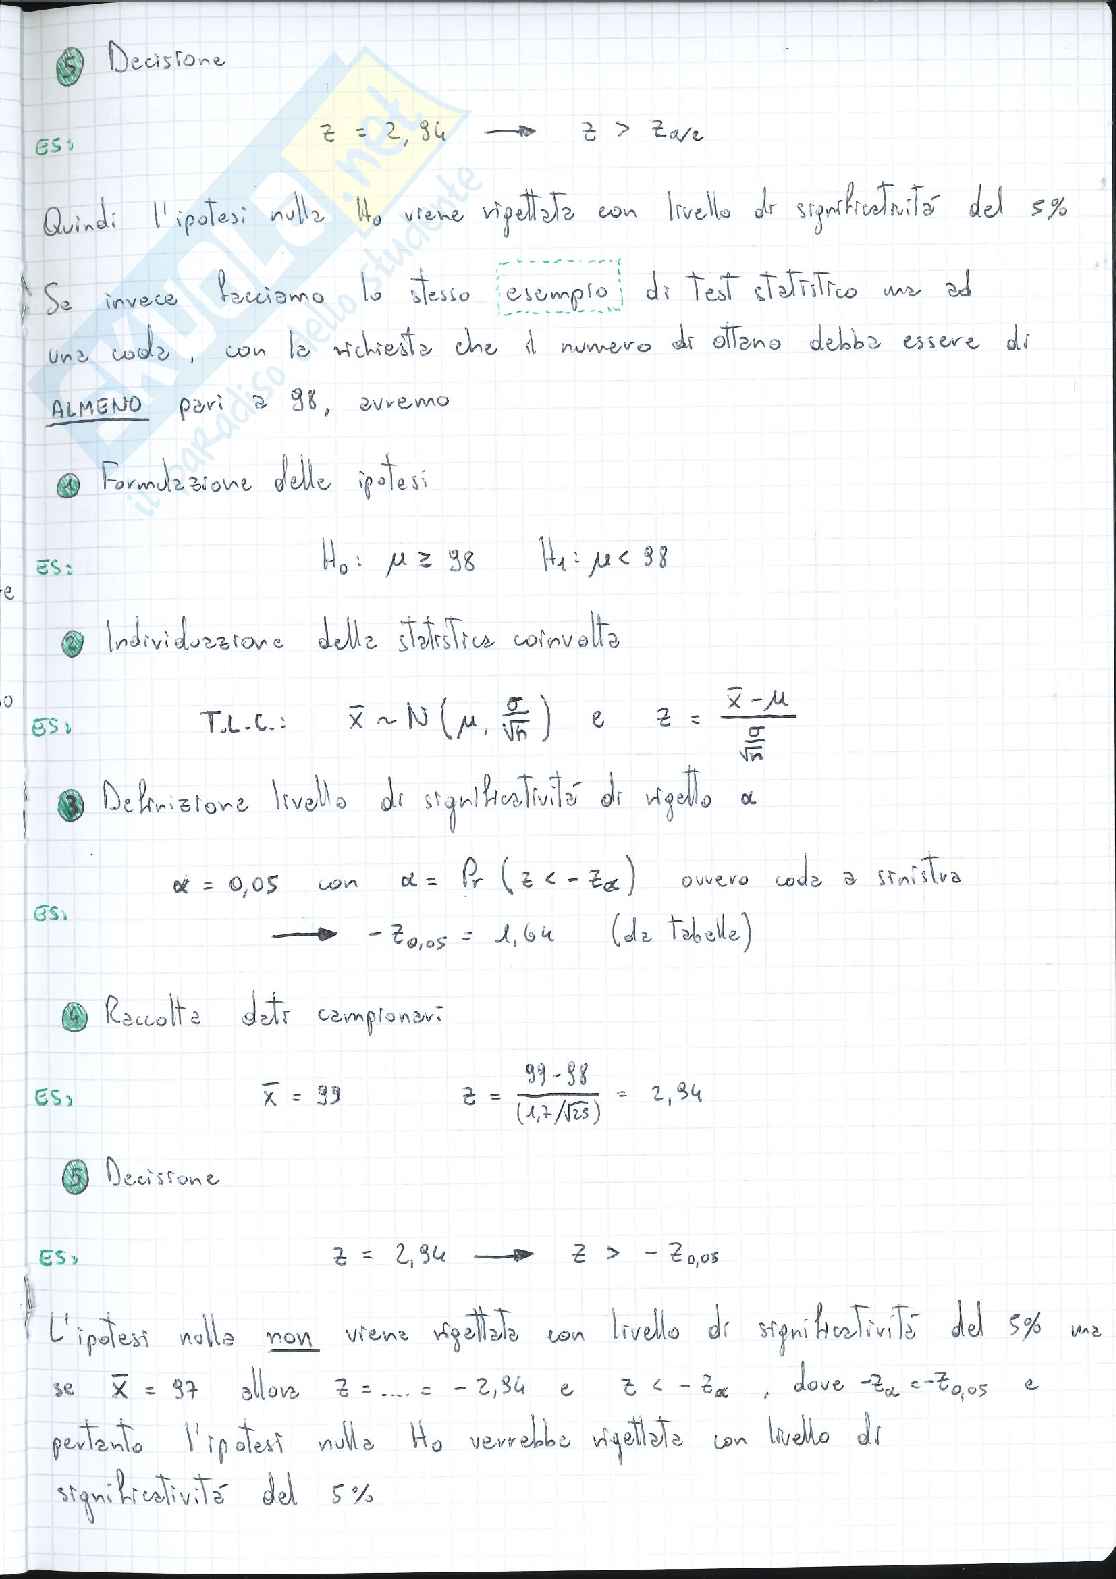 5 Decisione
ES: z = 2,94 → z > z_{α/2}
Quindi l'ipotesi nulla H₀ viene rigettata con livello di significatività del 5%
Se invece facciamo lo stesso esempio di test statistico ma ad
una coda, con la richiesta che il numero di ottano debba essere di
ALMENO pari a 98, avremo
1 Formulazione delle ipotesi
ES: H₀: μ ≥ 98 H₁: μ < 98
2 Individuazione della statistica coinvolta
ES: T.L.C.: x̄ ~ N(μ, σ/√n) e z = (x̄ - μ)/(σ/√n)
3 Definizione livello di significatività di rigetto α
α = 0,05 con α = Pr (z < - z_α) ovvero coda a sinistra
ES: → - z_{0,05} = 1,64 (da tabelle)
4 Raccolta dati campionari
ES: x̄ = 99 z = (99-98)/(1,7/√25) = 2,94
5 Decisione
ES: z = 2,94 → z > - z_{0,05}
L'ipotesi nulla non viene rigettata con livello di significatività del 5% ma
se x̄ = 97 allora z = .... = - 2,94 e z < - z_α, dove -z_α = -z_{0,05} e
pertanto l'ipotesi nulla H₀ verrebbe rigettata con livello di
significatività del 5%
SKUOLA.net
il paradiso dello studente